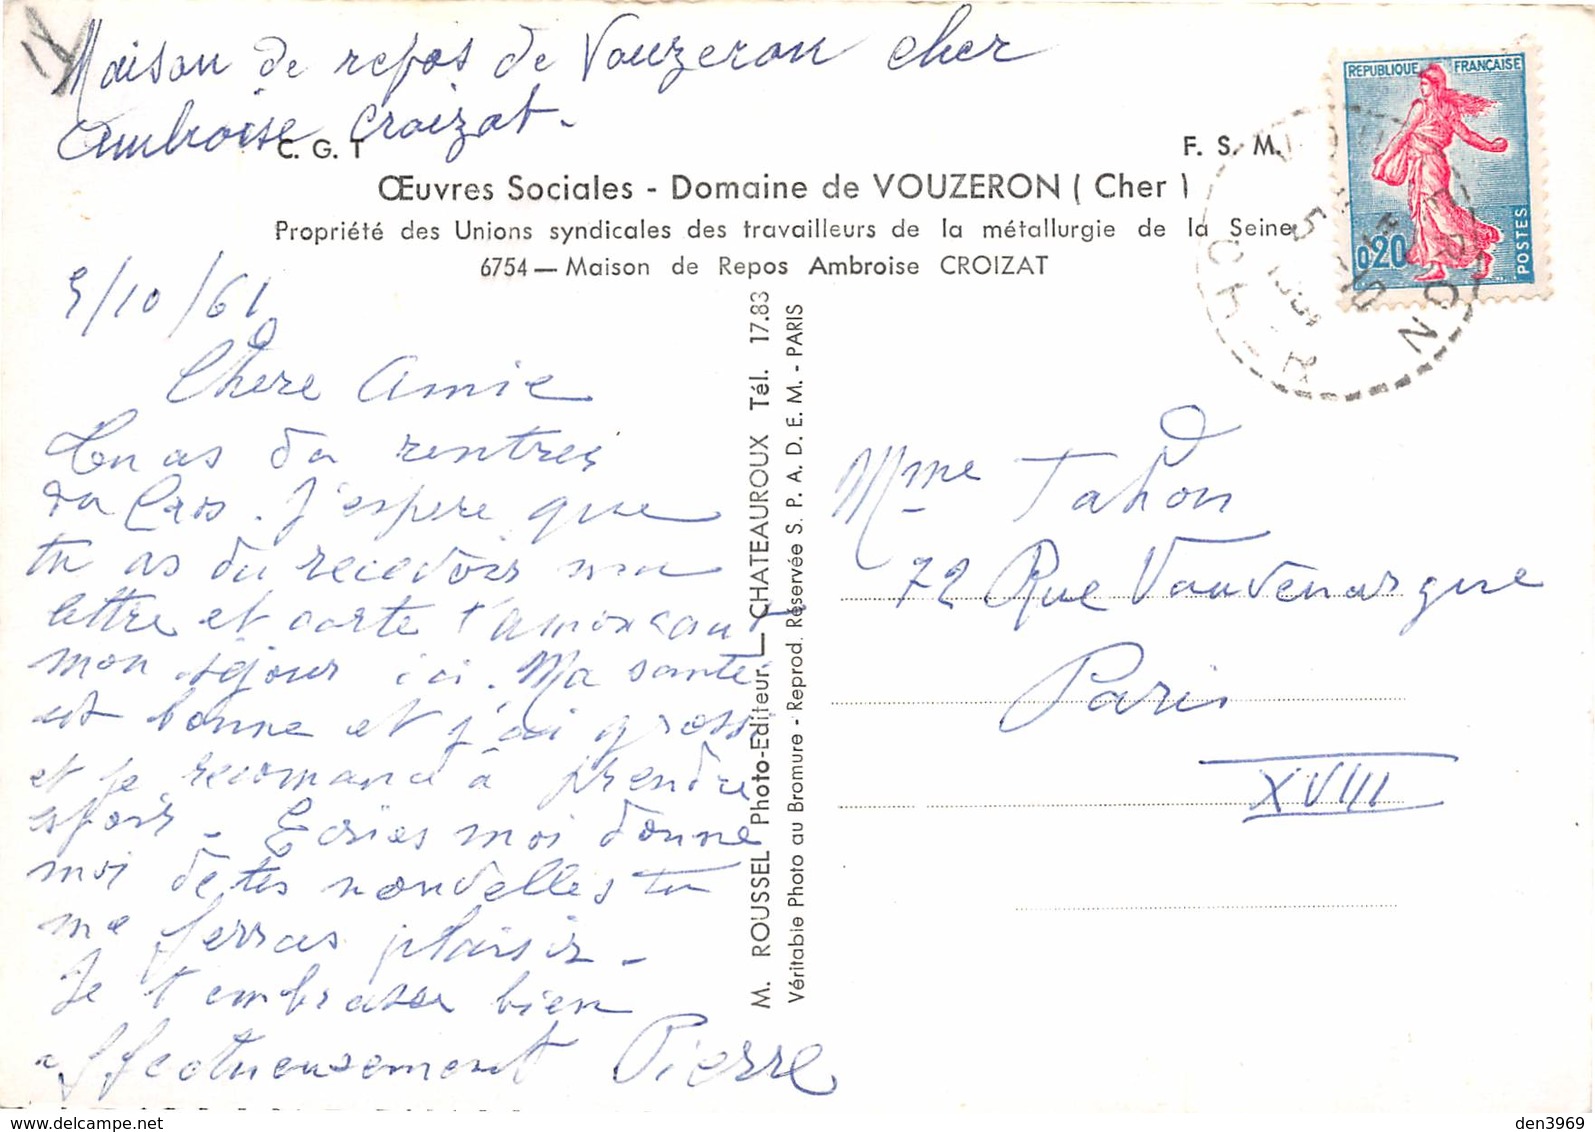 Maison de repos de Vouzeron Cher
Ambroise Croizat.
C. G. T
F. S. M.
REPUBLIQUE FRANÇAISE
0,20
POSTES
VOUZERON
5 -10
1961
CHER
Œuvres Sociales - Domaine de VOUZERON ( Cher )
Propriété des Unions syndicales des travailleurs de la métallurgie de la Seine
6754 — Maison de Repos Ambroise CROIZAT
5/10/61
Chère Amie
Tu as du rentrer
du . J'espere que
tu as du recevoir ma
lettre et carte t'anonçant
mon séjour ici. Ma santé
est bonne et j'ai grossi
et je recomance à prendre
espoir - Ecries moi donne
moi de tes nouvelles tu
me ferras plaisir -
Je t'embrasse bien
affectueusement Pierre
M. ROUSSEL Photo-Editeur — CHATEAUROUX Tél. 17.83
Véritable Photo au Bromure - Reprod. Réservée S. P. A. D. E. M. - PARIS
Mme Tahon
72 Rue Vauvenargue
Paris
XVIII
den3969